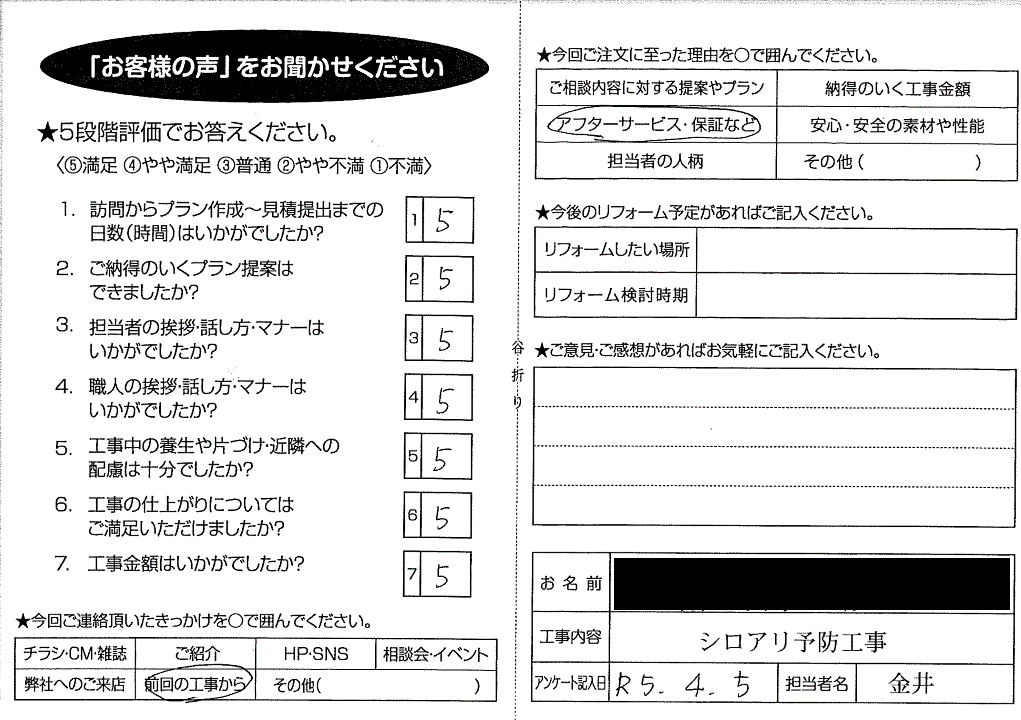 「お客様の声」をお聞かせください
★5段階評価でお答えください。
〈⑤満足 ④やや満足 ③普通 ②やや不満 ①不満〉
1. 訪問からプラン作成～見積提出までの
日数(時間)はいかがでしたか?
1 5
2. ご納得のいくプラン提案は
できましたか?
2 5
3. 担当者の挨拶・話し方・マナーは
いかがでしたか?
3 5
4. 職人の挨拶・話し方・マナーは
いかがでしたか?
4 5
5. 工事中の養生や片づけ・近隣への
配慮は十分でしたか?
5 5
6. 工事の仕上がりについては
ご満足いただけましたか?
6 5
7. 工事金額はいかがでしたか?
7 5
★今回ご連絡頂いたきっかけを○で囲んでください。
チラシ・CM・雑誌 ご紹介 HP・SNS 相談会・イベント
弊社へのご来店 前回の工事から その他( )
谷折り
★今回ご注文に至った理由を○で囲んでください。
ご相談内容に対する提案やプラン 納得のいく工事金額
アフターサービス・保証など 安心・安全の素材や性能
担当者の人柄 その他( )
★今後のリフォーム予定があればご記入ください。
リフォームしたい場所
リフォーム検討時期
★ご意見・ご感想があればお気軽にご記入ください。
お名前
工事内容 シロアリ予防工事
アンケート記入日 R5.4.5 担当者名 金井